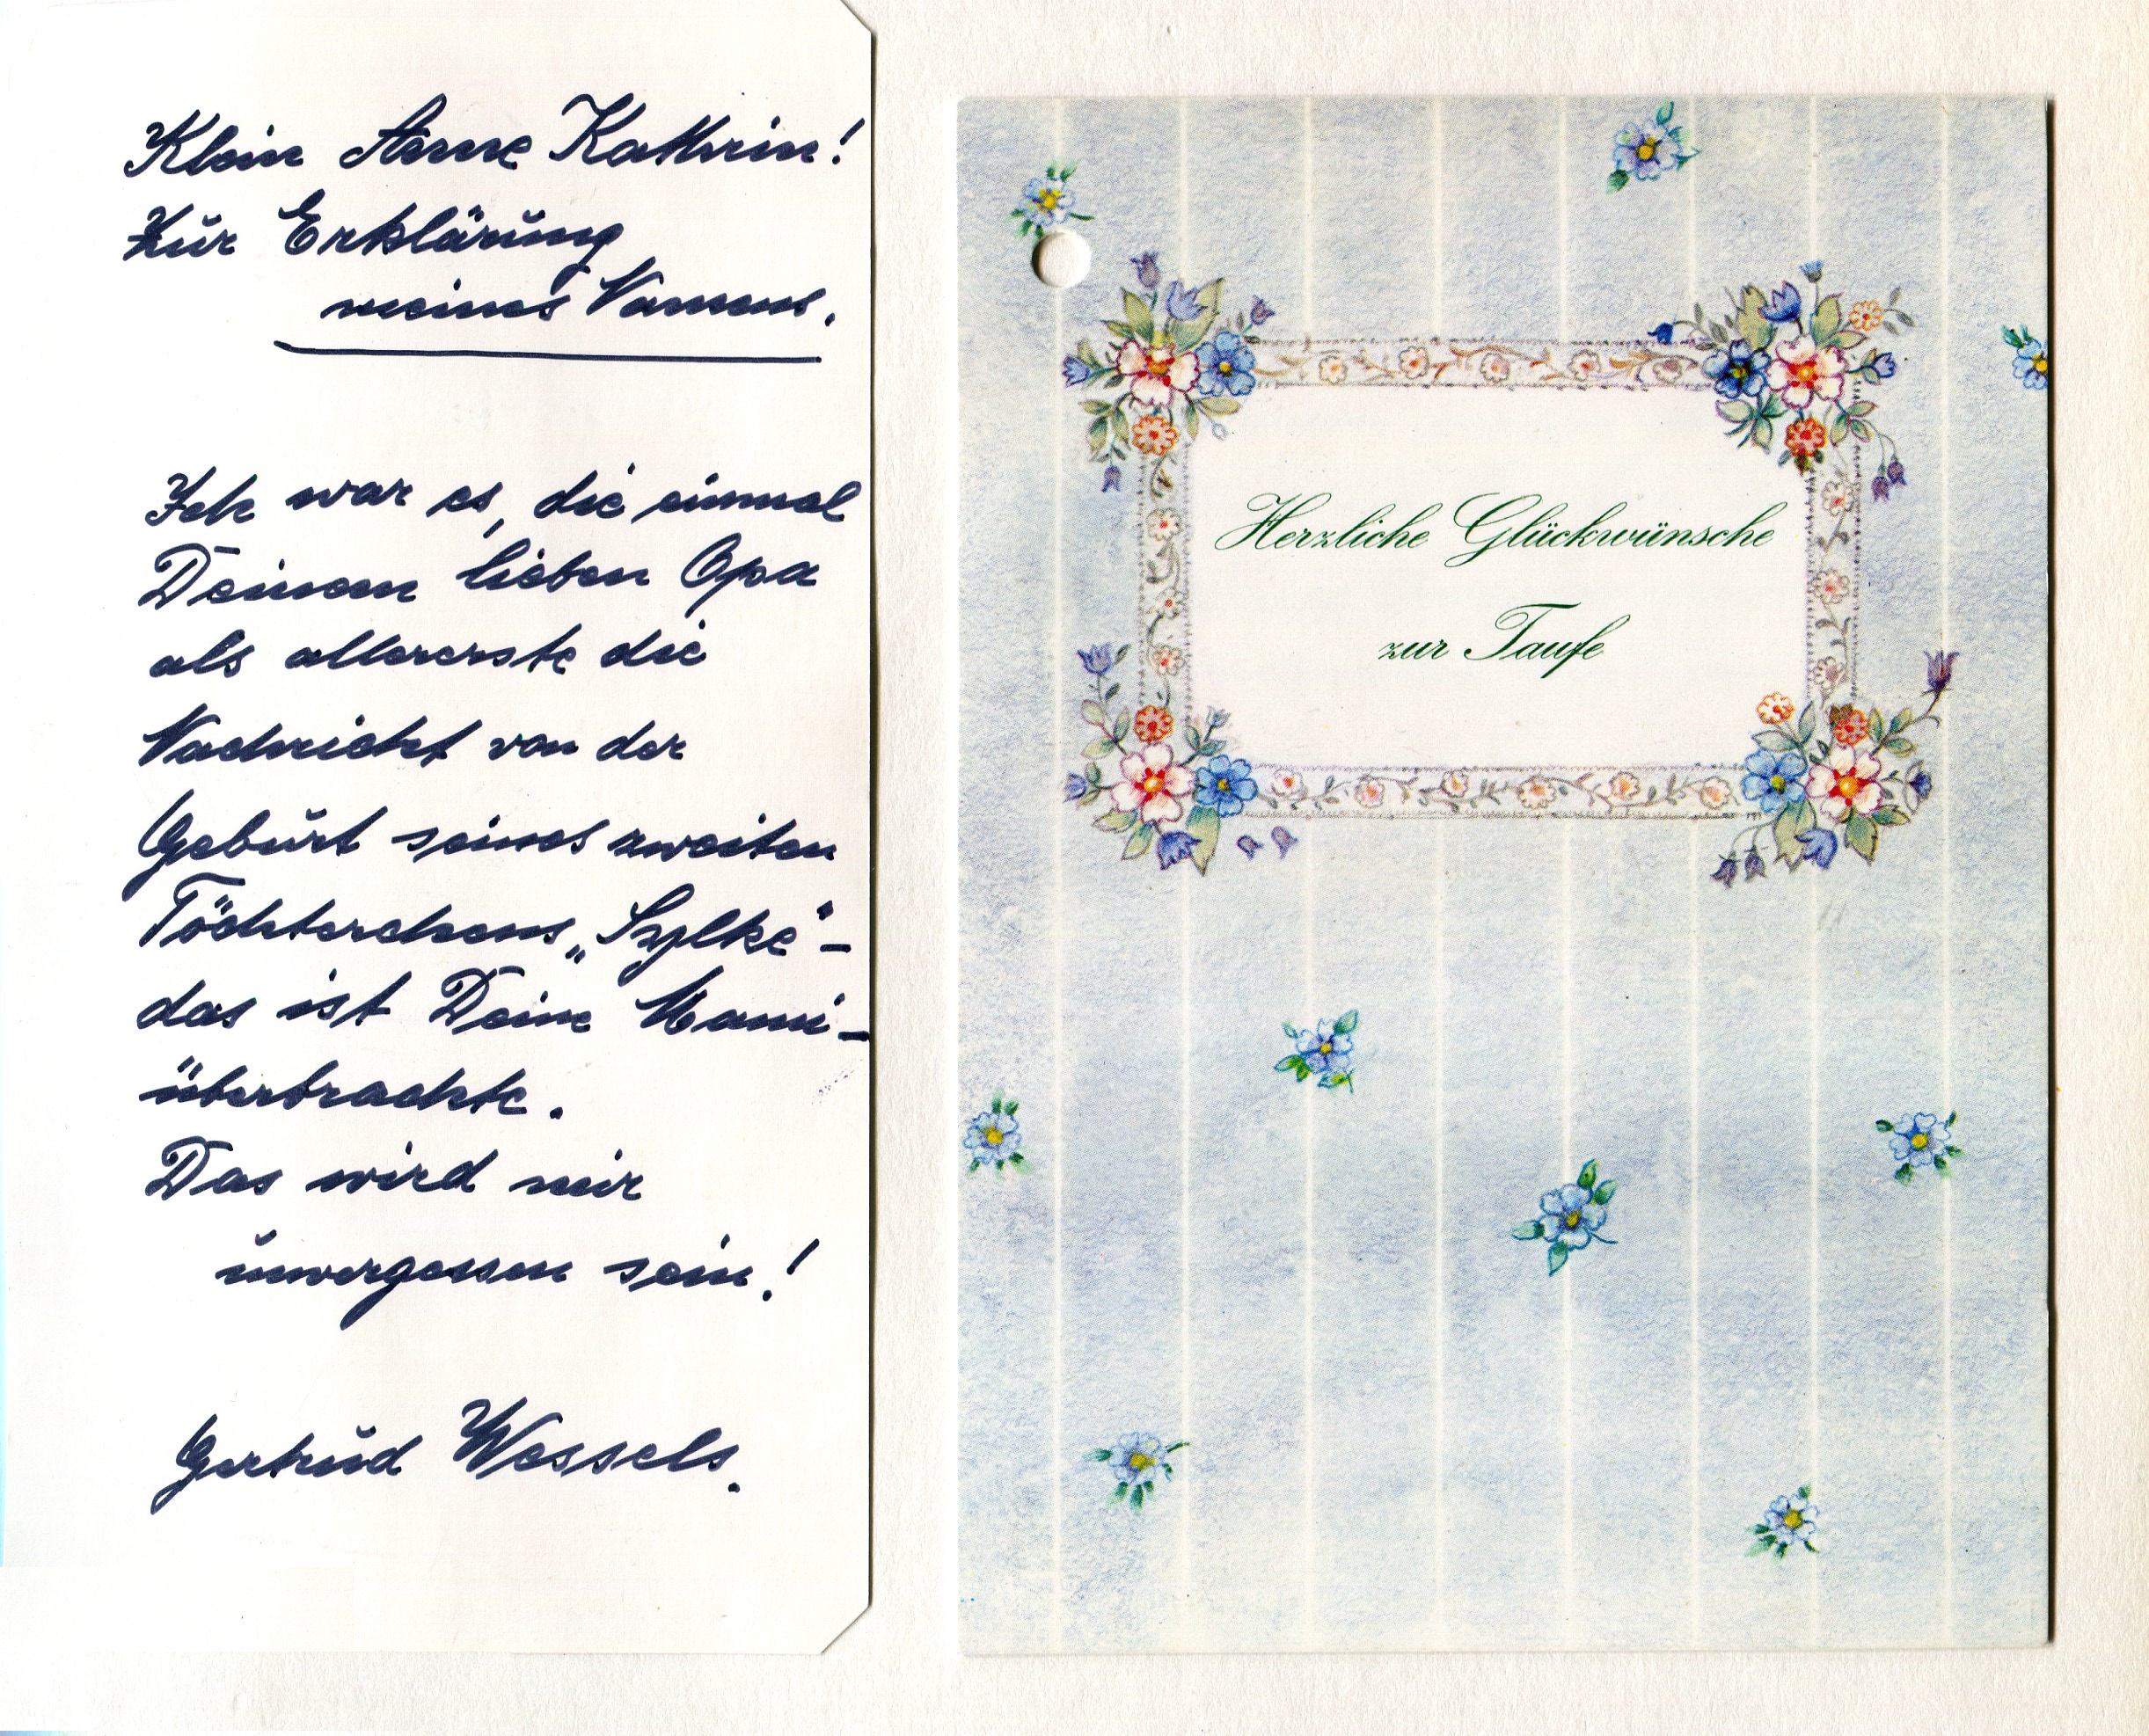 Klein Anne Kathrin!
Zur Erklärung
meines Namens.
Ich war es, die einmal
Deinem lieben Opa
als allererste die
Nachricht von der
Geburt seines zweiten
Töchterchens „Sylke“ –
das ist Deine Mami –
überbrachte.
Das wird mir
unvergessen sein!
Gertrud Wessels.
Herzliche Glückwünsche
zur Taufe